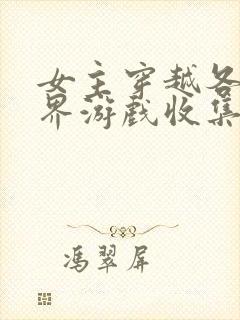 女主穿越各
界游戏收集
冯翠屏